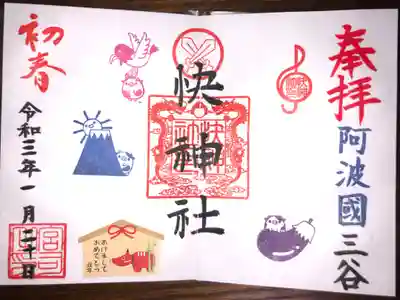 奉拝
阿波國三谷
快神社
初春
令和三年一月二十日
あけまして
おめでとう